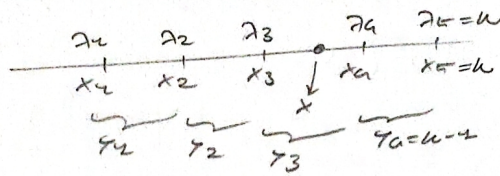 λ1 λ2 λ3 λ4 λ5=n
x1 x2 x3 x4 x5=n
x
Y1 Y2 Y3 Y4=n-1